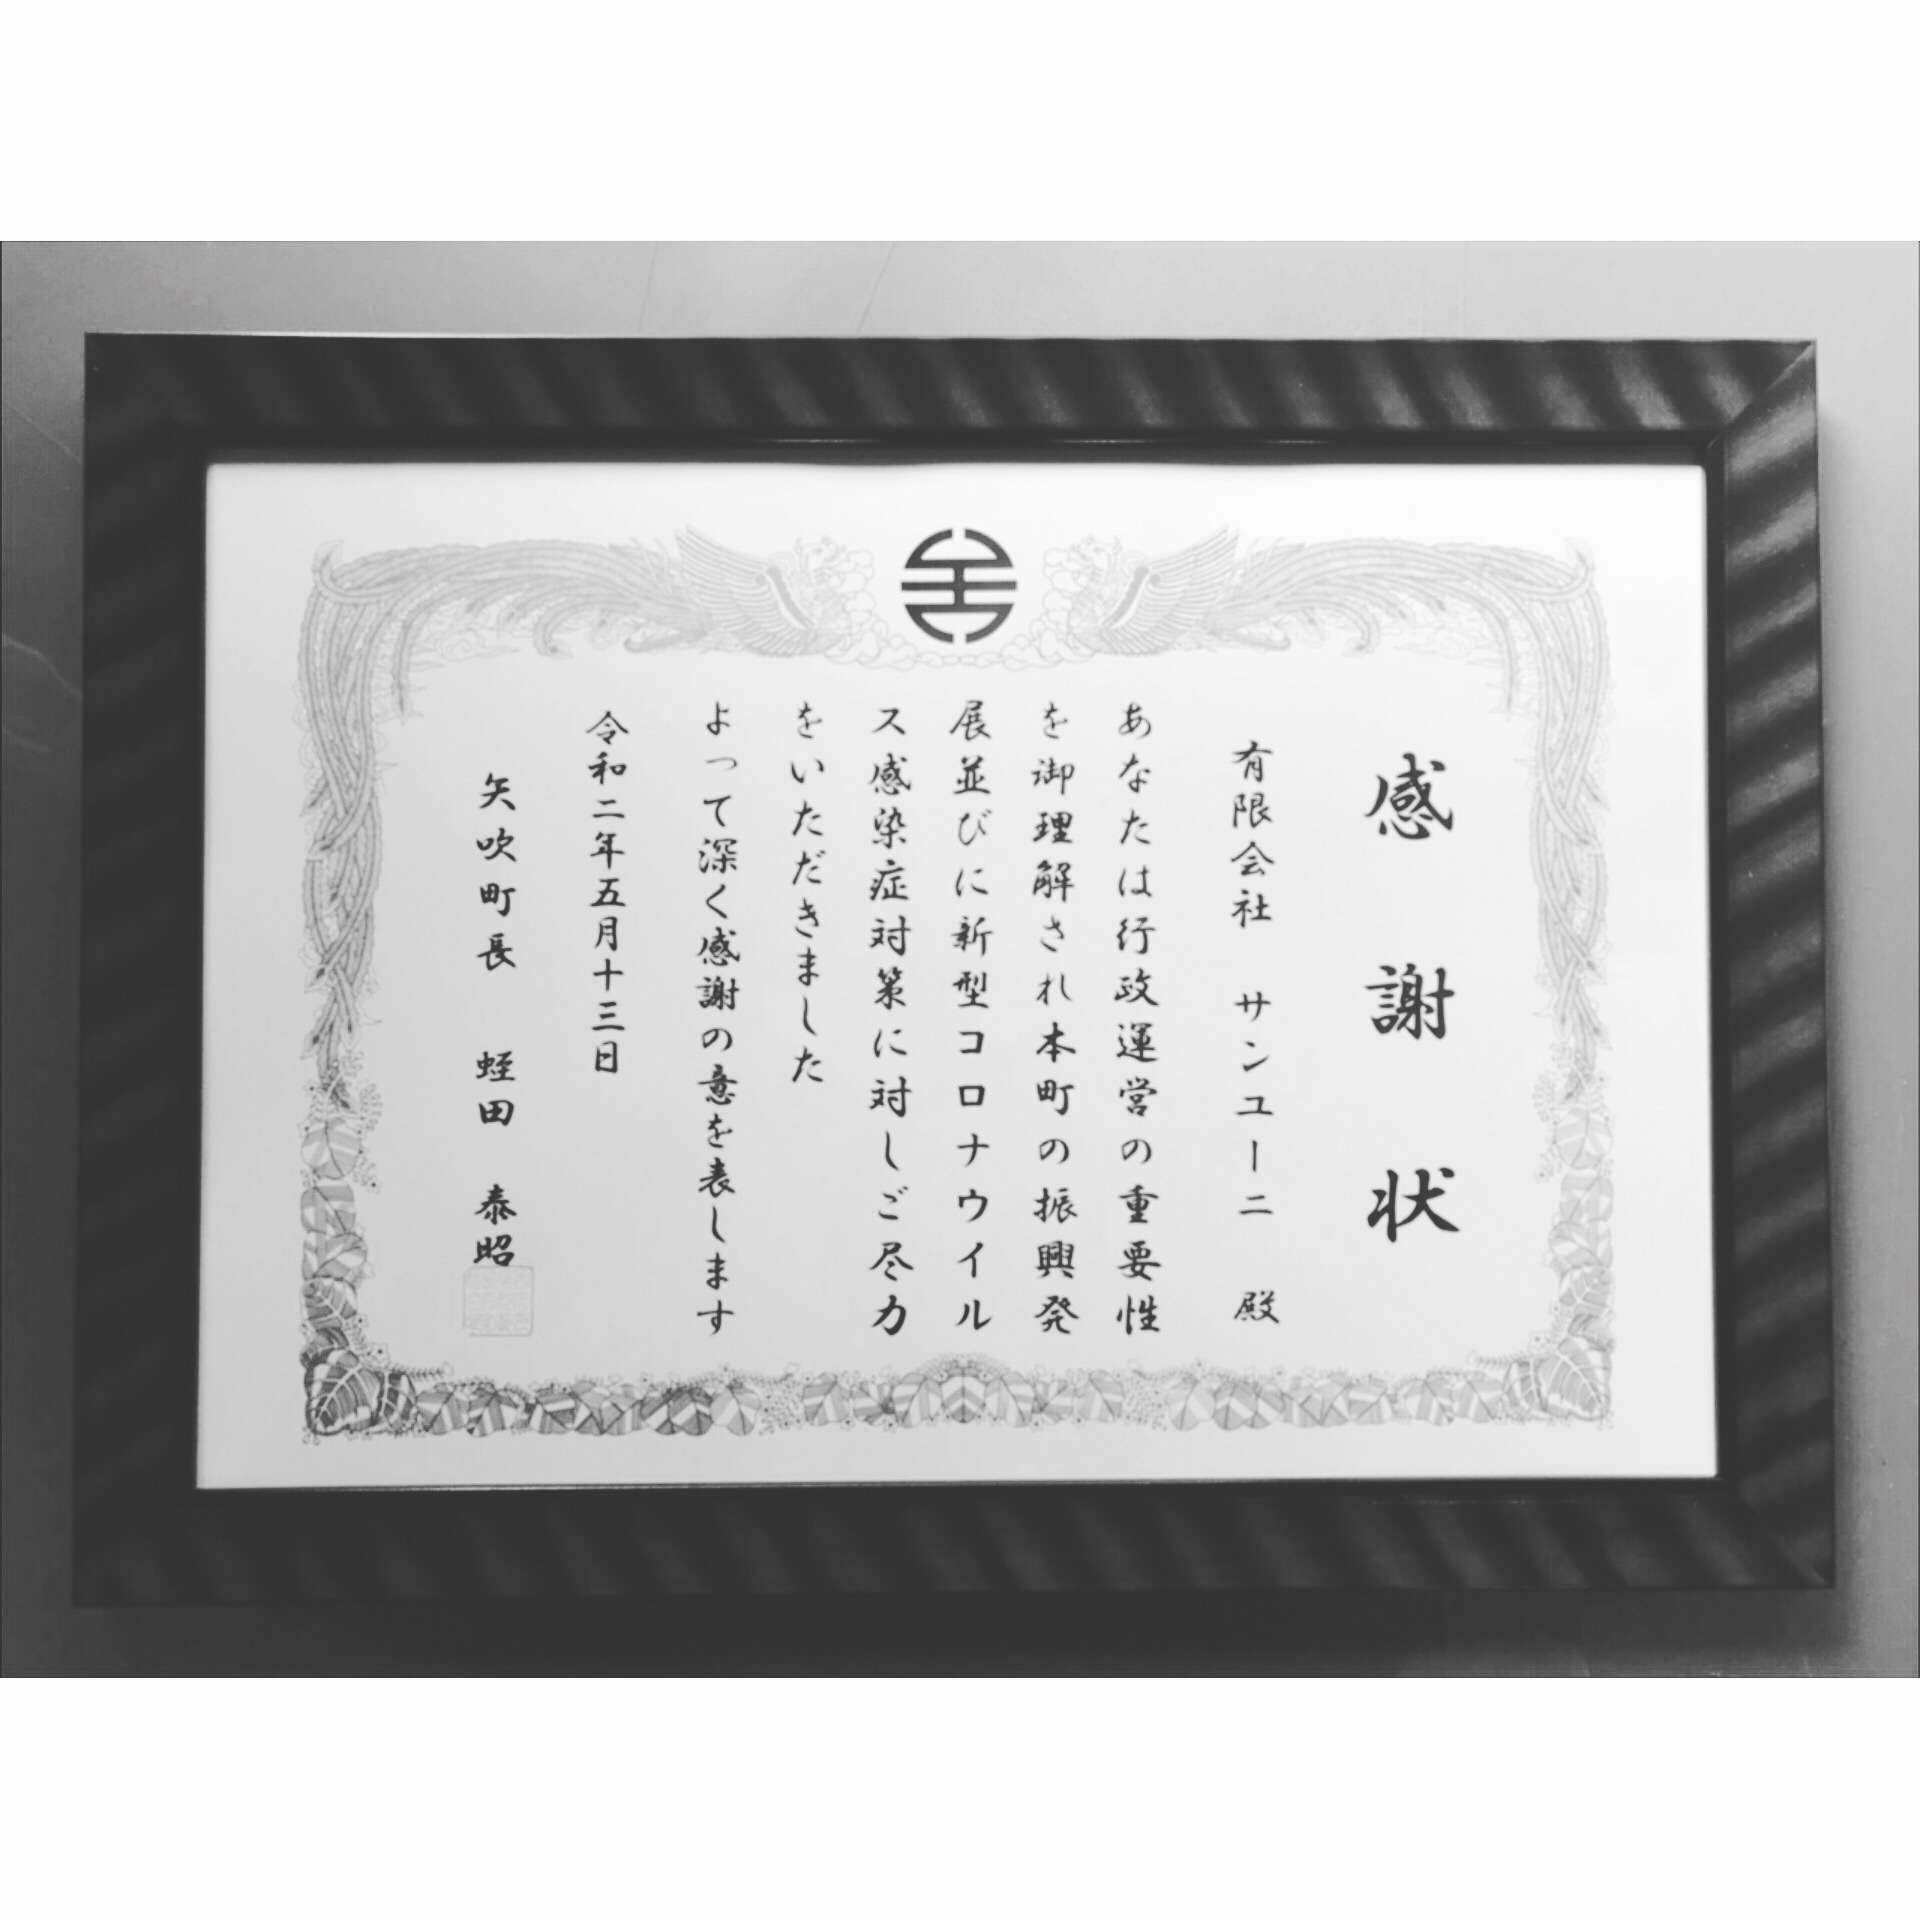 感謝状
有限会社 サンユーニ 殿
あなたは行政運営の重要性
を御理解され本町の振興発
展並びに新型コロナウイル
ス感染症対策に対しご尽力
をいただきました
よって深く感謝の意を表します
令和二年五月十三日
矢吹町長 蛭田 泰昭